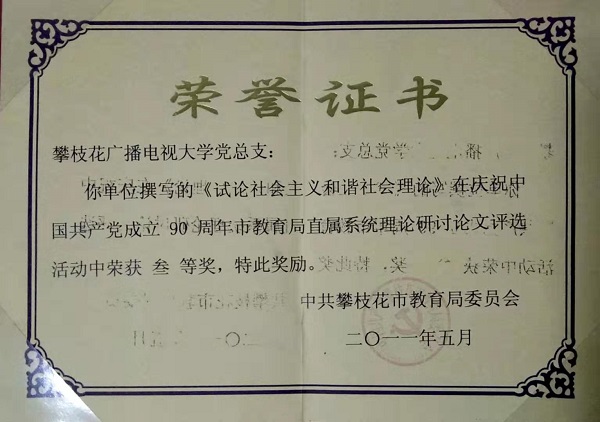 荣誉证书
攀枝花广播电视大学党总支：
你单位撰写的《试论社会主义和谐社会理论》在庆祝中
国共产党成立 90 周年市教育局直属系统理论研讨论文评选
活动中荣获 叁 等奖，特此奖励。
中共攀枝花市教育局委员会
二〇一一年五月